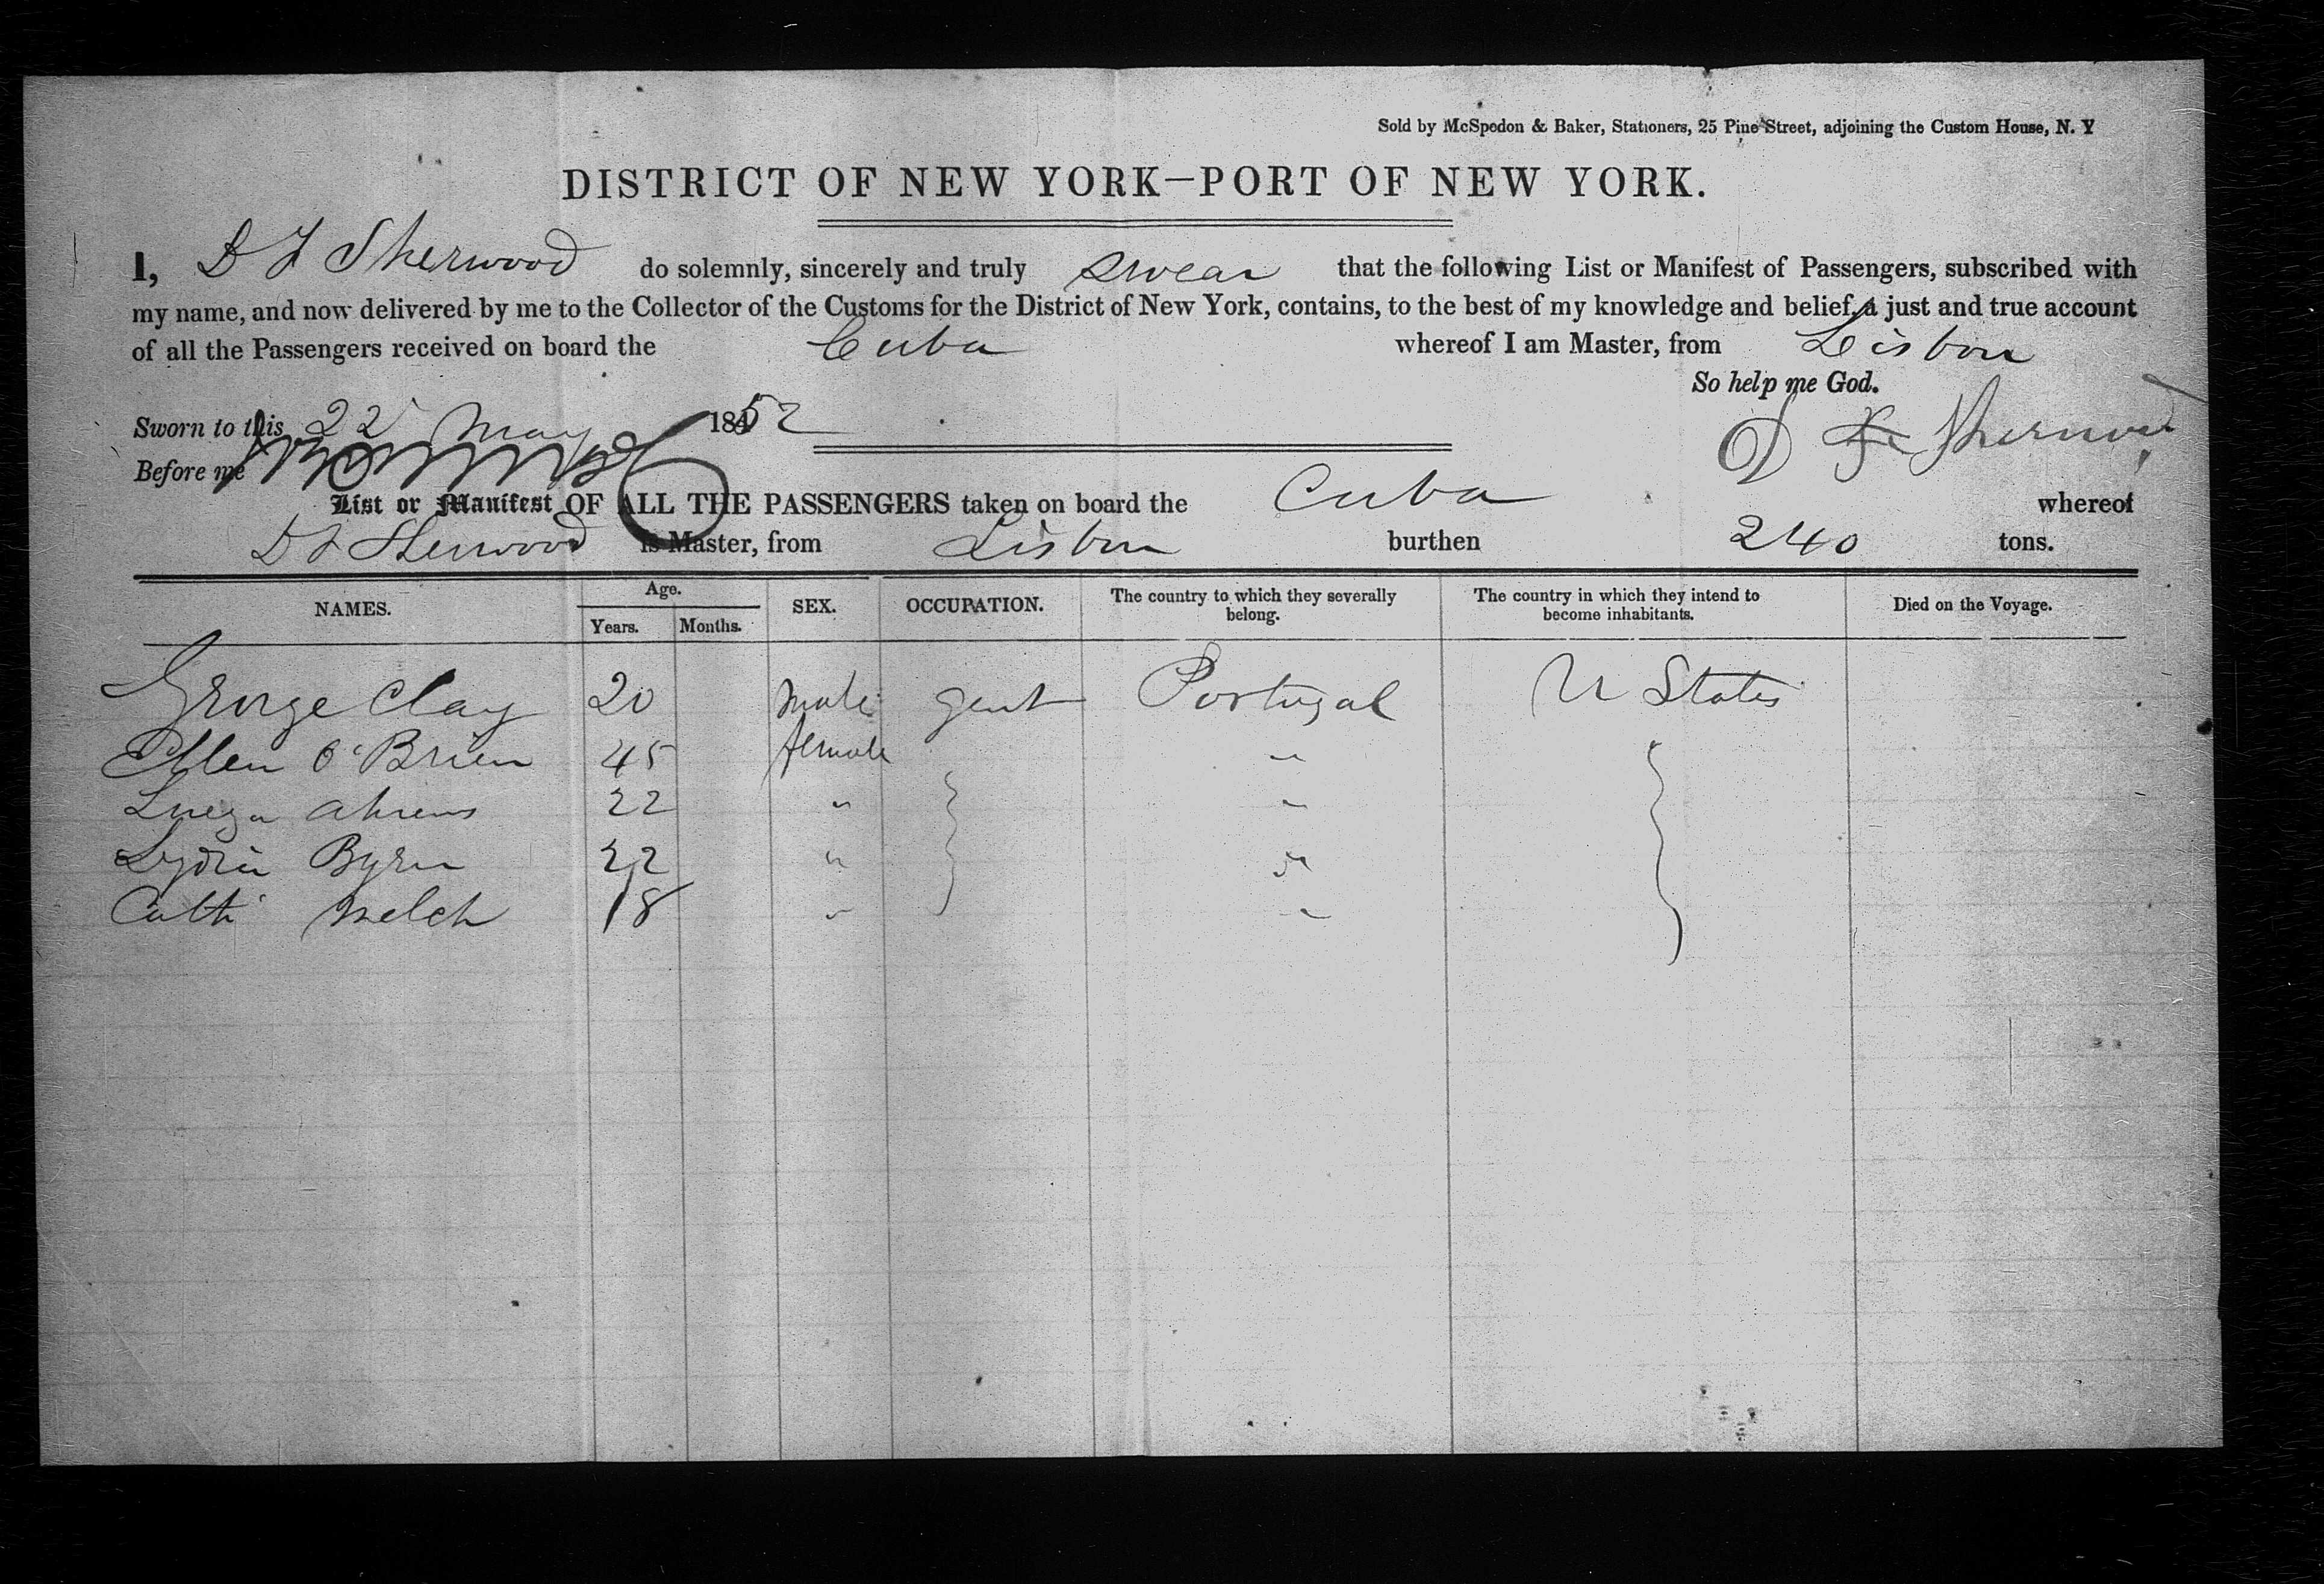 Sold by McSpedon & Baker, Stationers, 25 Pine Street, adjoining the Custom House, N. Y
DISTRICT OF NEW YORK—PORT OF NEW YORK.
I, D F Sherwood do solemnly, sincerely and truly swear that the following List or Manifest of Passengers, subscribed with
my name, and now delivered by me to the Collector of the Customs for the District of New York, contains, to the best of my knowledge and belief, a just and true account
of all the Passengers received on board the Cuba whereof I am Master, from Lisbon
So help me God.
Sworn to this 22 May 1852 D F Sherwood
Before me
List or Manifest OF ALL THE PASSENGERS taken on board the Cuba whereof
D F Sherwood is Master, from Lisbon burthen 240 tons.
NAMES. Age. Years. Months. SEX. OCCUPATION. The country to which they severally belong. The country in which they intend to become inhabitants. Died on the Voyage.
George Clay 20 male gent Portugal U States
Ellen O'Brien 45 female "
Ahrens 22 " "
Lydia Byrn 22 " "
Cath Welch 18 " "